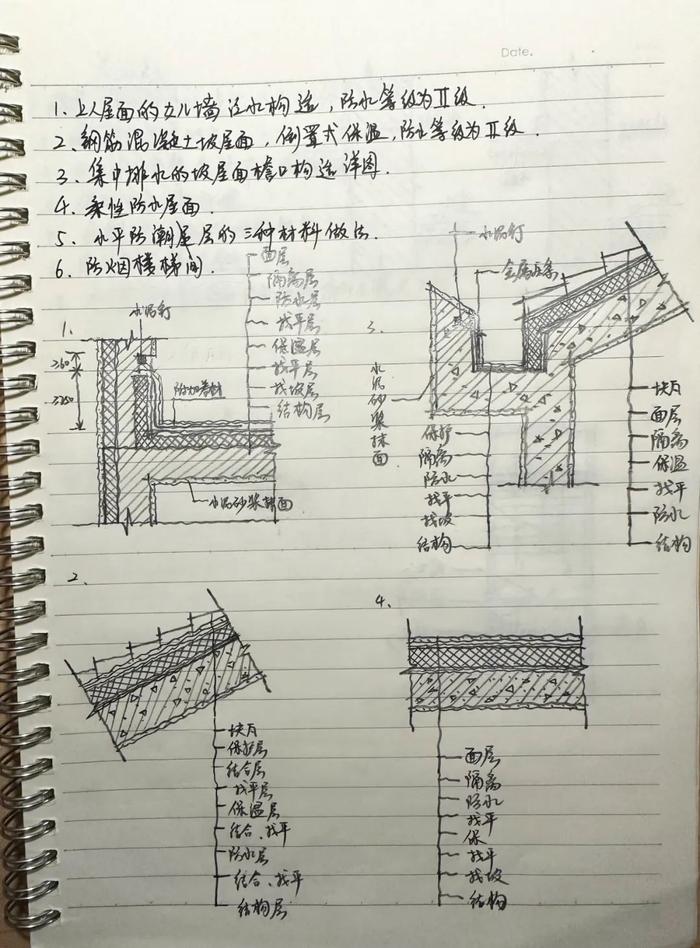 Date.
1、上人屋面的女儿墙泛水构造,防水等级为Ⅱ级.
2、钢筋混凝土坡屋面,倒置式保温,防水等级为Ⅱ级.
3、集中排水的坡屋面檐口构造详图.
4、柔性防水屋面.
5、水平防潮层的三种材料做法.
6、防烟楼梯间.
1.
水泥钉
≥250
附加卷材
面层
隔离层
防水层
找平层
保温层
找平层
找坡层
结构层
水泥砂浆抹面
3.
水泥钉
金属压条
水泥砂浆抹面
保护
隔离
防水
找平
找坡
结构
块瓦
面层
隔离
保温
找平
防水
结构
2、
块瓦
保护层
结合层
找平层
保温层
结合、找平
防水层
结合、找平
结构层
4.
面层
隔离
防水
找平
保
找平
找坡
结构